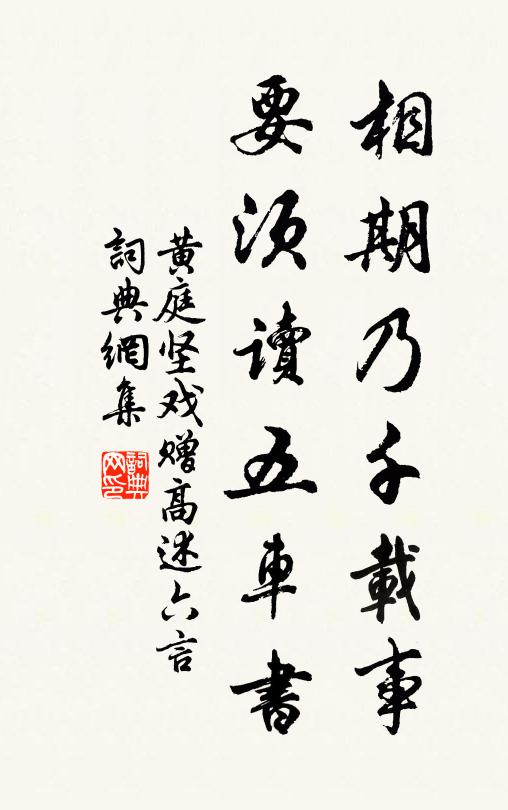 相期乃千載事
要須讀五車書
黄庭坚戏赠高述六言
詞典網集
詞典
网印